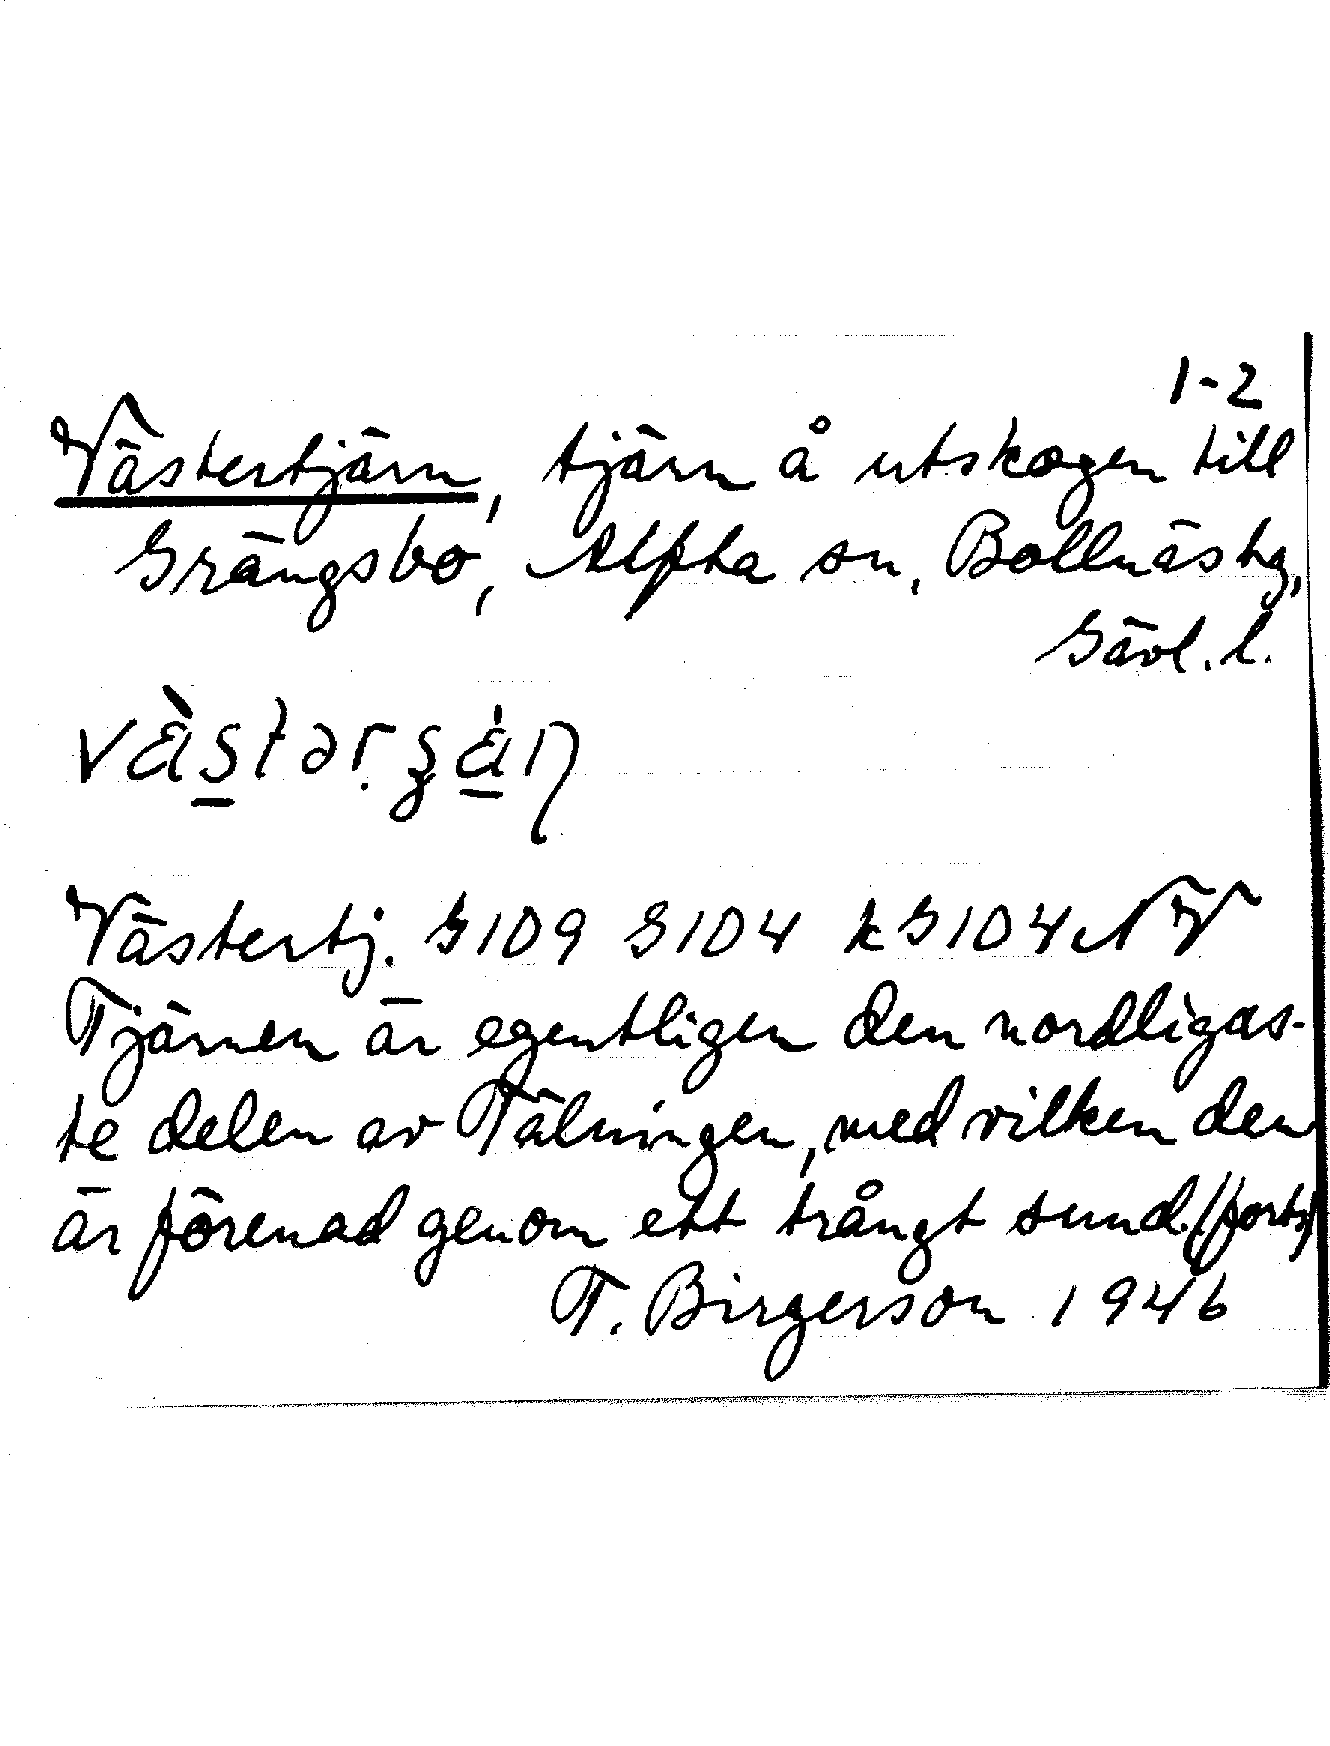 1-2
Västertjärn, tjärn å utskogen till
Grängsbo, Alfta sn, Bollnäs tg,
Gävl. l.
Västertj. G109 G104 kG104NV
Tjärnen är egentligen den nordligas-
te delen av Tälningen, med vilken den
är förenad genom ett trångt sund. (forts)
T. Birgerson 1946